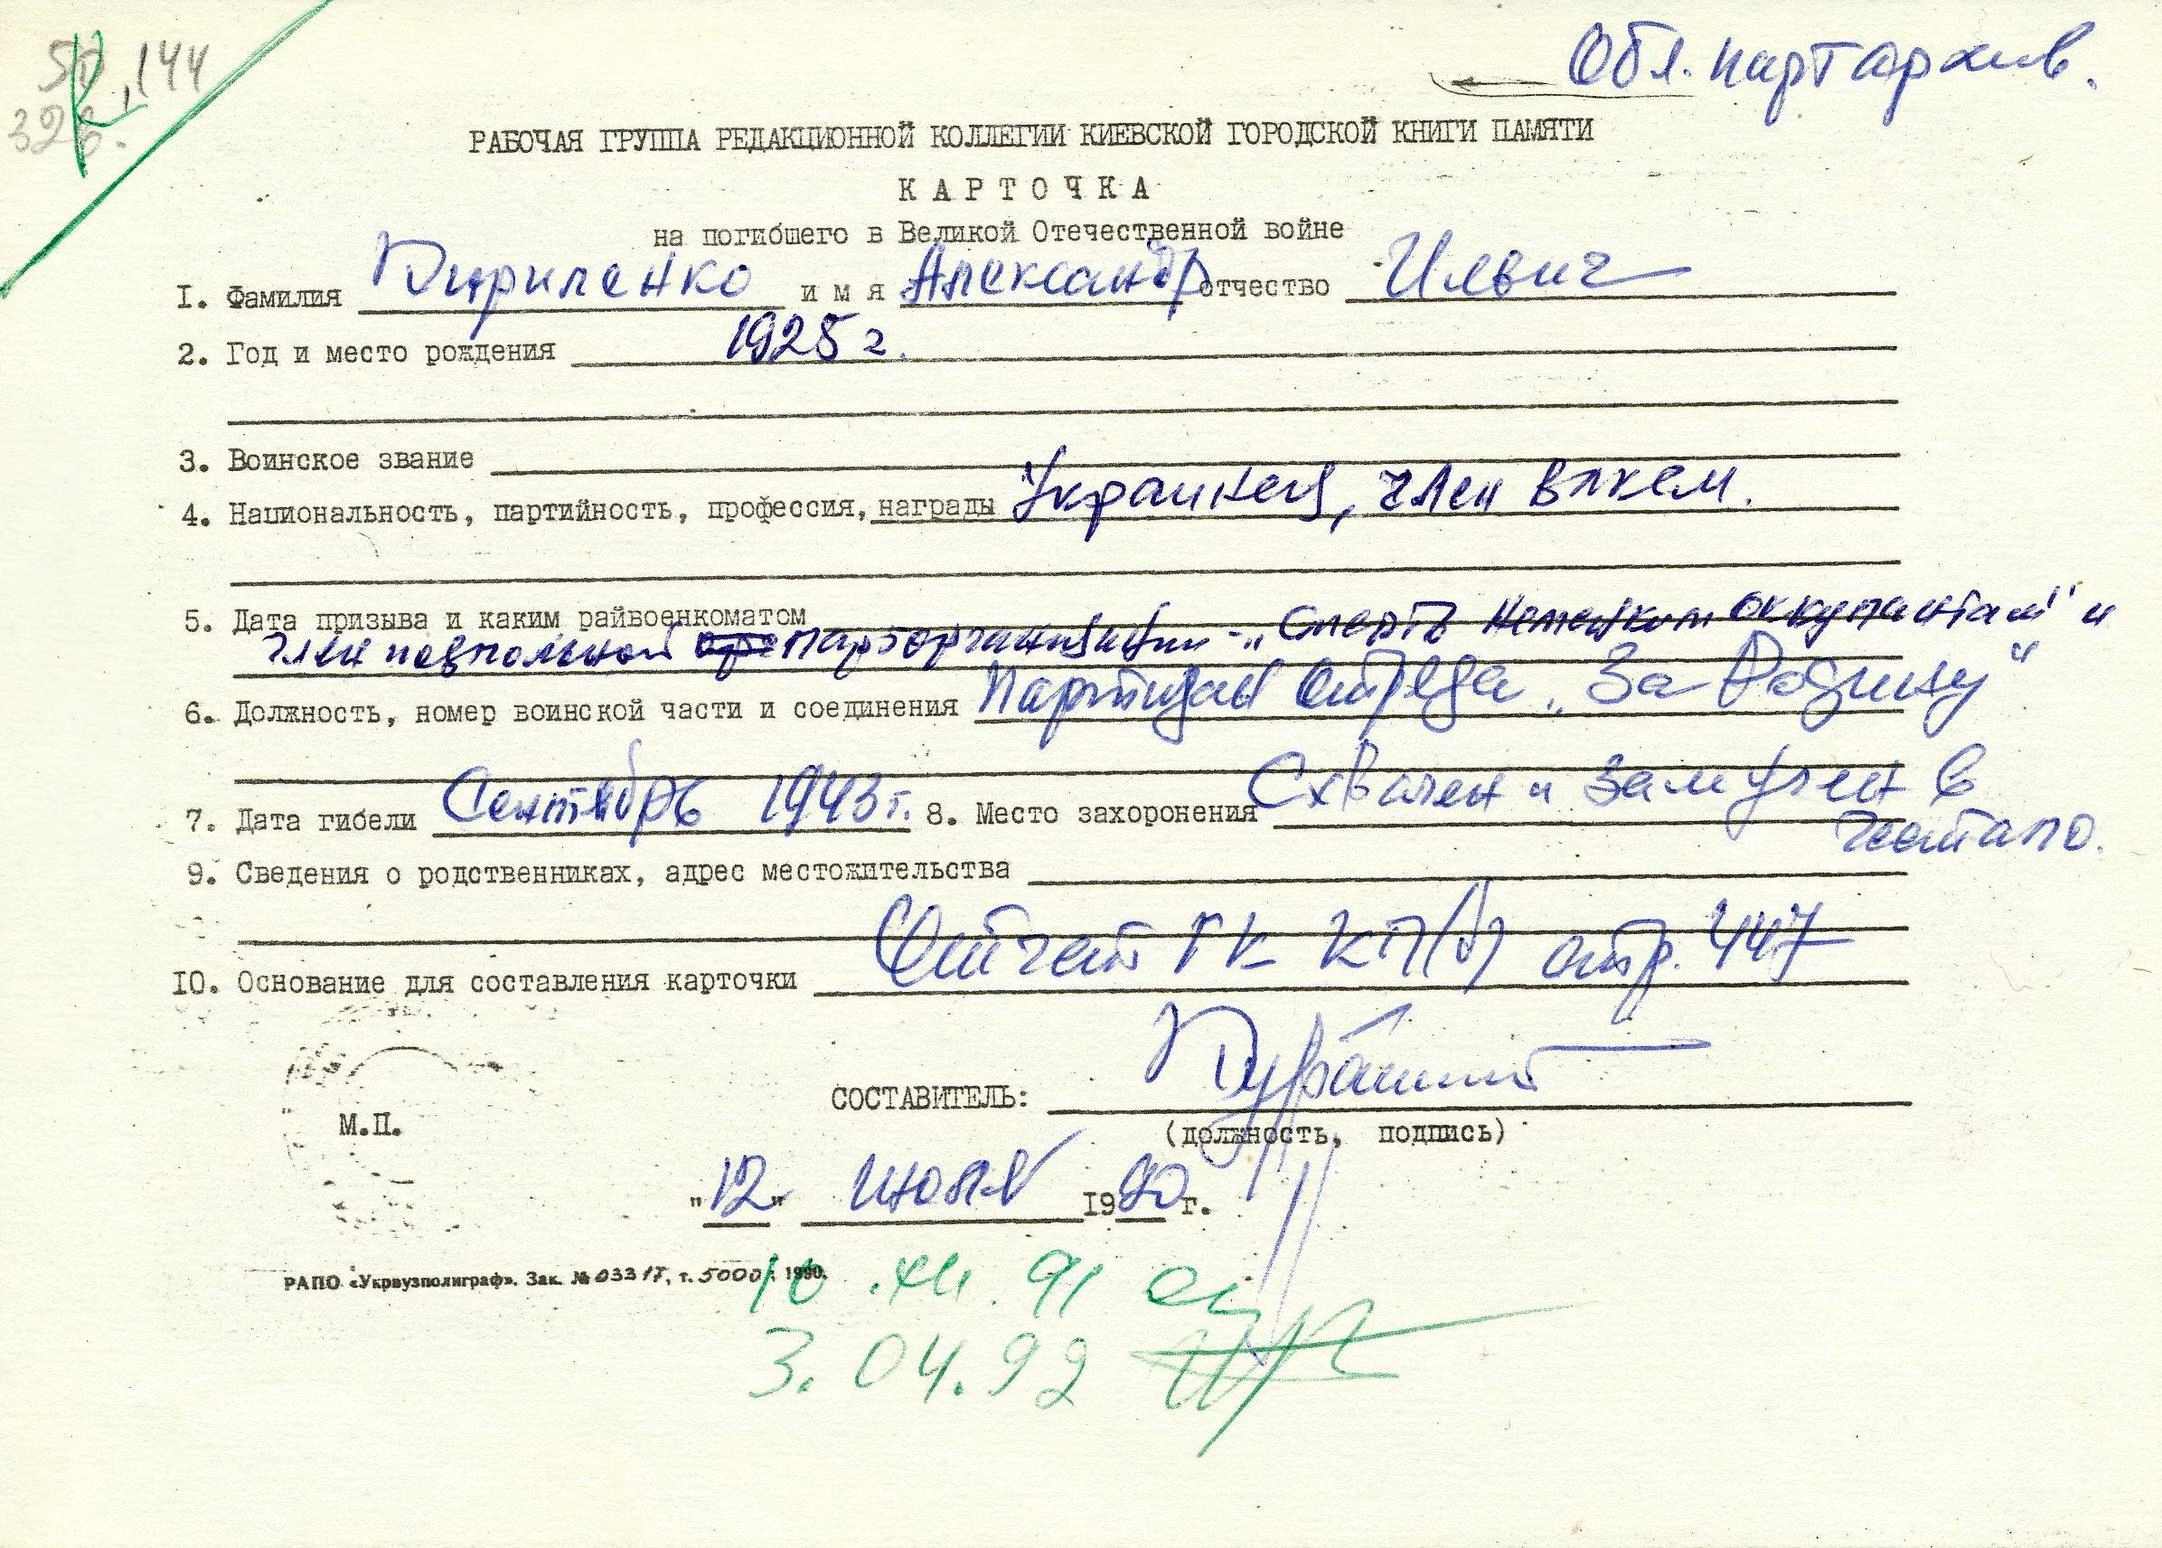 50, 144
326.
Обл. партархив.
РАБОЧАЯ ГРУППА РЕДАКЦИОННОЙ КОЛЛЕГИИ КИЕВСКОЙ ГОРОДСКОЙ КНИГИ ПАМЯТИ
КАРТОЧКА
на погибшего в Великой Отечественной войне
1. Фамилия Кириленко имя Александр отчество Ильич
2. Год и место рождения 1925 г.
3. Воинское звание
4. Национальность, партийность, профессия, награды Украинец, член ВЛКСМ.
5. Дата призыва и каким райвоенкоматом
член подпольной парторганизации - "Смерть немецким оккупантам" и
6. Должность, номер воинской части и соединения Партизан отряда "За Родину"
7. Дата гибели Сентябрь 1943 г. 8. Место захоронения Схвачен и замучен в
гестапо.
9. Сведения о родственниках, адрес местожительства
10. Основание для составления карточки Отчет ГК КП(б) стр. 447
СОСТАВИТЕЛЬ:
М.П.
(должность, подпись)
"12" июля 1990 г.
РАПО «Укрвузполиграф». Зак. № 03317, т. 5000. 1990.
10.XII.91
3.04.92